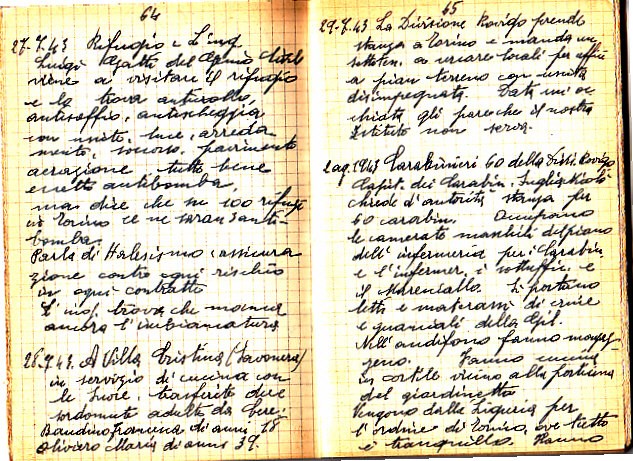 64
27-7.43 Rifugio e L'ing
Luigi Gatto del Genio Civile
viene a visitare il rifugio
e lo trova anticrollo,
antisoffio, antischeggia
con uscite, luce, arreda
mento, soccorso, pavimento
aerazione tutto bene
eccetto antibomba,
ma dice che su 100 rifugi
in Torino ce ne saran 3 anti-
bomba.
Parla di
zione contro ogni rischio
in ogni contratto
L'ing. trova che manca
ancora l'imbiancatura
28.7.43. A Villa Cristina (Savonera)
in servizio di cucina con
le Suore, trasferite due
sordomute adulte da Ceres;
Baudino Francesca di anni 18
Olivero Maria di anni 39.
65
29-7.43 La Divisione Rovigo prende
stanza a Torino e manda un
sotten. a cercare locali per uffici
a pian terreno con uscita
disimpegnata. Data un'oc
chiata gli pare che il nostro
Istituto non serva.
2 ag. 1943 Carabinieri 60 della Divis. Rovigo
Capit. dei Carabin.
chiede d'autorità stanza per
60 carabin. Occupano
le camerate maschili del piano
dell'infermeria per i Carabin.
e l'infermer. i sottuffic. e
il Maresciallo. Si portano
letti e materassi di crine
e guanciali della Gil.
Nell'audifono fanno magaz
zeno. Fanno cucina
in cortile vicino alla portina
del giardinetto
Vengono dalla Liguria per
l'ordine di Torino, ove tutto
è tranquillo. Hanno